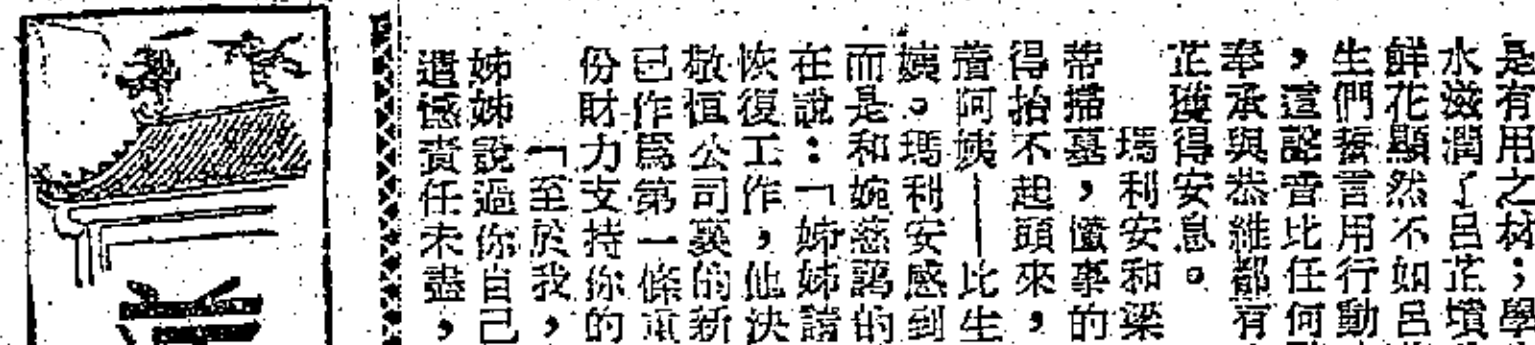 是有用之材;學
水滋潤了呂芷墳
鮮花顯然不如呂
生們誓言用行動
,這認音比任何
奉承與恭維都有
芷獲得安息。
瑪利安和梁
蒂掃墓,懂事的
得抬不起頭來,
蕾阿姨——比生
姨。瑪利安感到
而是和婉慈藹的
在說:「姊姊請
恢復工作,他決
敬恒公司裏的新
已作爲第一條重
份財力支持你的
「至於我,
姊姊說過你自己
遺憾責任未盡,